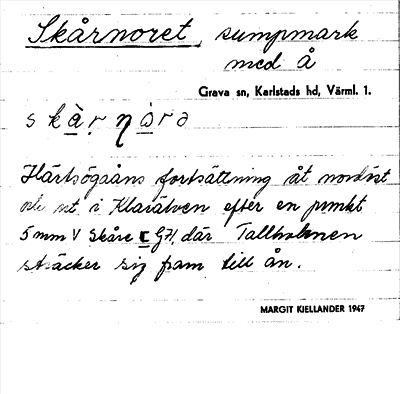 Skårnoret, sumpmark
med å
Grava sn, Karlstads hd, Värml. 1.
s k à ṛ ŋ ò r ə
Härtsögaåns fortsättning åt nordöst
och ut i Klarälven efter en punkt
5 mm V Skåre C GH, där Tallholmen
sträcker sig fram till ån.
MARGIT KJELLANDER 1947